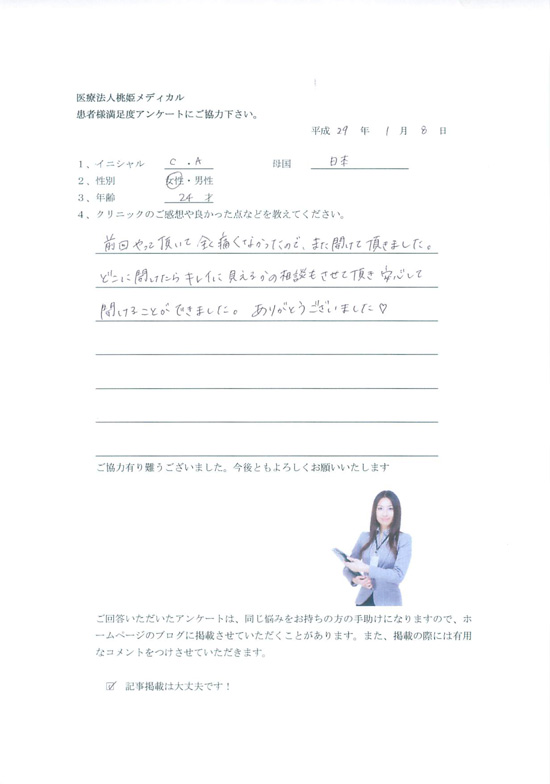 医療法人桃姫メディカル
患者様満足度アンケートにご協力下さい。
平成 29 年 1 月 8 日
1、イニシャル C . A 母国 日本
2、性別 女性・男性
3、年齢 24 才
4、クリニックのご感想や良かった点などを教えてください。
前回やって頂いて全く痛くなかったので、また開けて頂きました。
どこに開けたらキレイに見えるかの相談もさせて頂き安心して
開けることができました。ありがとうございました♡
ご協力有り難うございました。今後ともよろしくお願いいたします
ご回答いただいたアンケートは、同じ悩みをお持ちの方の手助けになりますので、ホ
ームページのブログに掲載させていただくことがあります。また、掲載の際には有用
なコメントをつけさせていただきます。
☑ 記事掲載は大丈夫です！